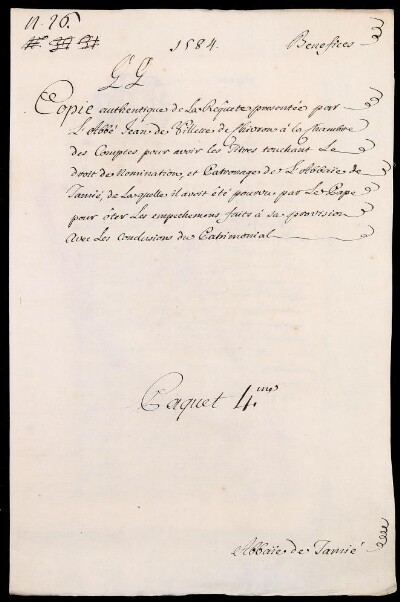 n. 26.
1584. Benefices
GG
Copie authentique de La Reqûete presentée par
L'Abbé Jean de Villette de Chivron à la Chambre
des Comptes pour avoir les Titres touchant Le
droit de Nomination, et Patronage de L'Abbaïe de
Tamié, de Laquelle il avoit été pourvu par Le Pape
pour ôter Les empechemens faits à sa provision
avec Les Conclusions du Patrimonial
Paquet 4.mo
Abbaïe de Tamié